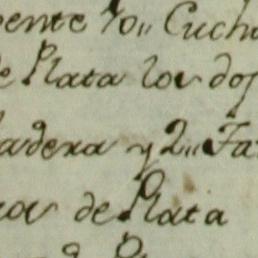 pente 70,, Cucha
de Plata los dos
adera y 2,, Fa
ros de Plata